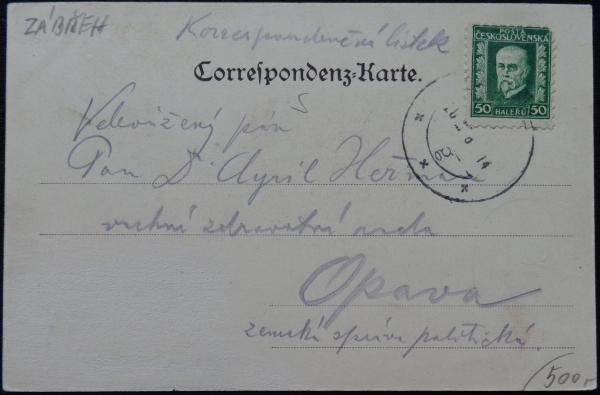 ZÁBŘEH
Korrespondenční lístek
Correspondenz-Karte.
POŠTA
ČESKOSLOVENSKÁ
50 HALÉŘŮ 50
Velevážený pán
Pan Dr Cyril Heřman
vrchní zdravotní rada
Opava
zemská správa politická.
500,-